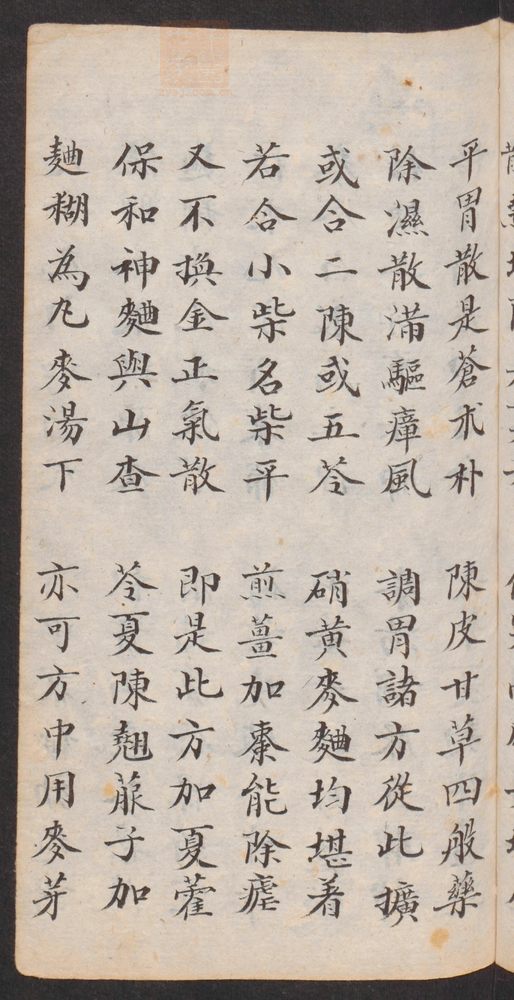 平胃散是蒼朮朴　陳皮甘草四般藥
除濕散滿驅瘴風　調胃諸方從此擴
或合二陳或五苓　硝黃麥麯均堪著
若合小柴名柴平　煎薑加棗能除瘧
又不換金正氣散　即是此方加夏藿
保和神麯與山查　苓夏陳翹菔子加
麯糊為丸麥湯下　亦可方中用麥芽